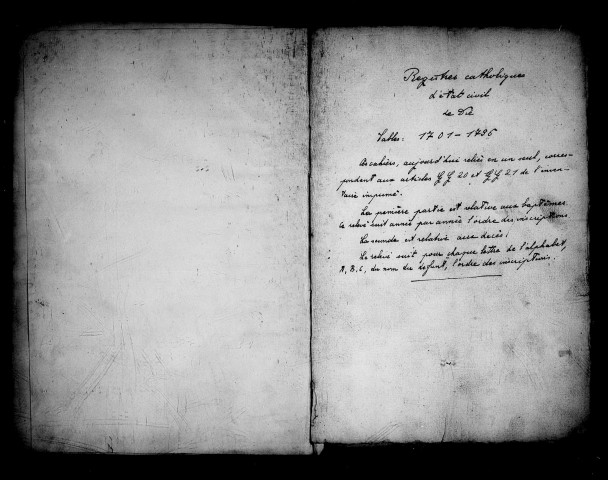 Registres catholiques
d'état civil
de Die
Tables : 1701-1786
Ces cahiers, aujourd'hui reliés en un seul, corres-
pondent aux articles GG 20 et GG 21 de l'inven-
taire imprimé.
La première partie est relative aux baptêmes.
Le relevé suit année par année l'ordre des inscriptions
La seconde est relative aux décès ;
Le relevé suit pour chaque lettre de l'alphabet,
A, B, C, du nom du défunt, l'ordre des inscriptions.